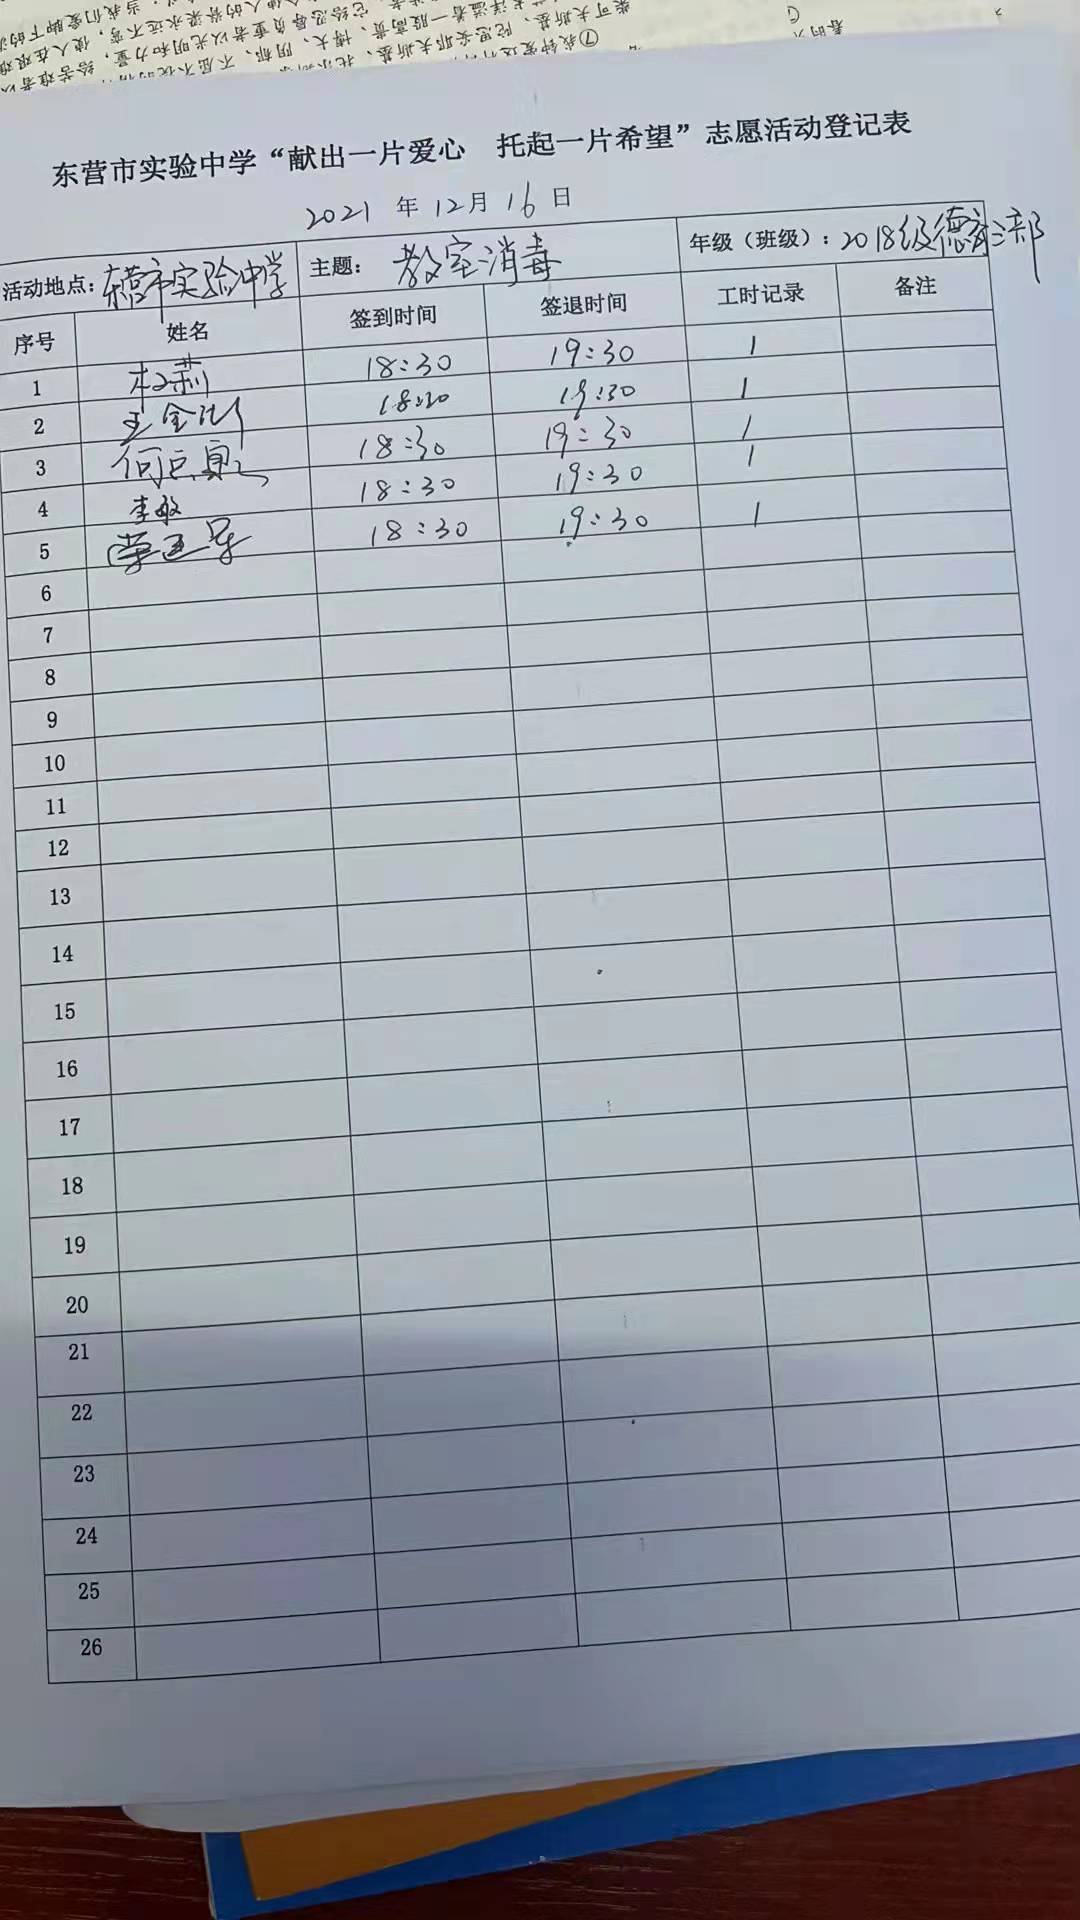 东营市实验中学“献出一片爱心 托起一片希望”志愿活动登记表
2021 年 12月 16日
活动地点：东营市实验中学 主题： 教室消毒 年级（班级）：2018级德育三部
序号 姓名 签到时间 签退时间 工时记录 备注
1 杜莉 18:30 19:30 1
2 18:30 19:30 1
3 18:30 19:30 1
4 李敏 18:30 19:30 1
5 18:30 19:30 1
6
7
8
9
10
11
12
13
14
15
16
17
18
19
20
21
22
23
24
25
26